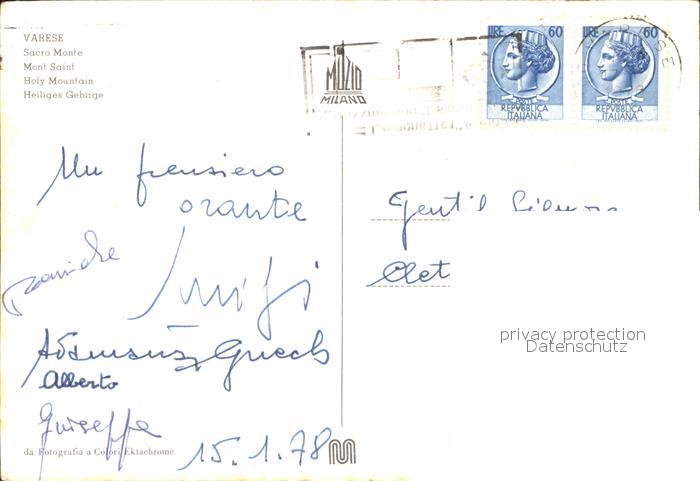 VARESE
Sacro Monte
Mont Saint
Holy Mountain
Heiliges Gebirge
MUZIO
MILANO
LIRE 60
POSTE
REPVBBLICA
ITALIANA
LIRE 60
POSTE
REPVBBLICA
ITALIANA
Un pensiero
orante
Gentil
Clet
Luigi
Alberto
Giuseppe
da Fotografia a Colori Ektachrome
15.1.78
privacy protection
Datenschutz